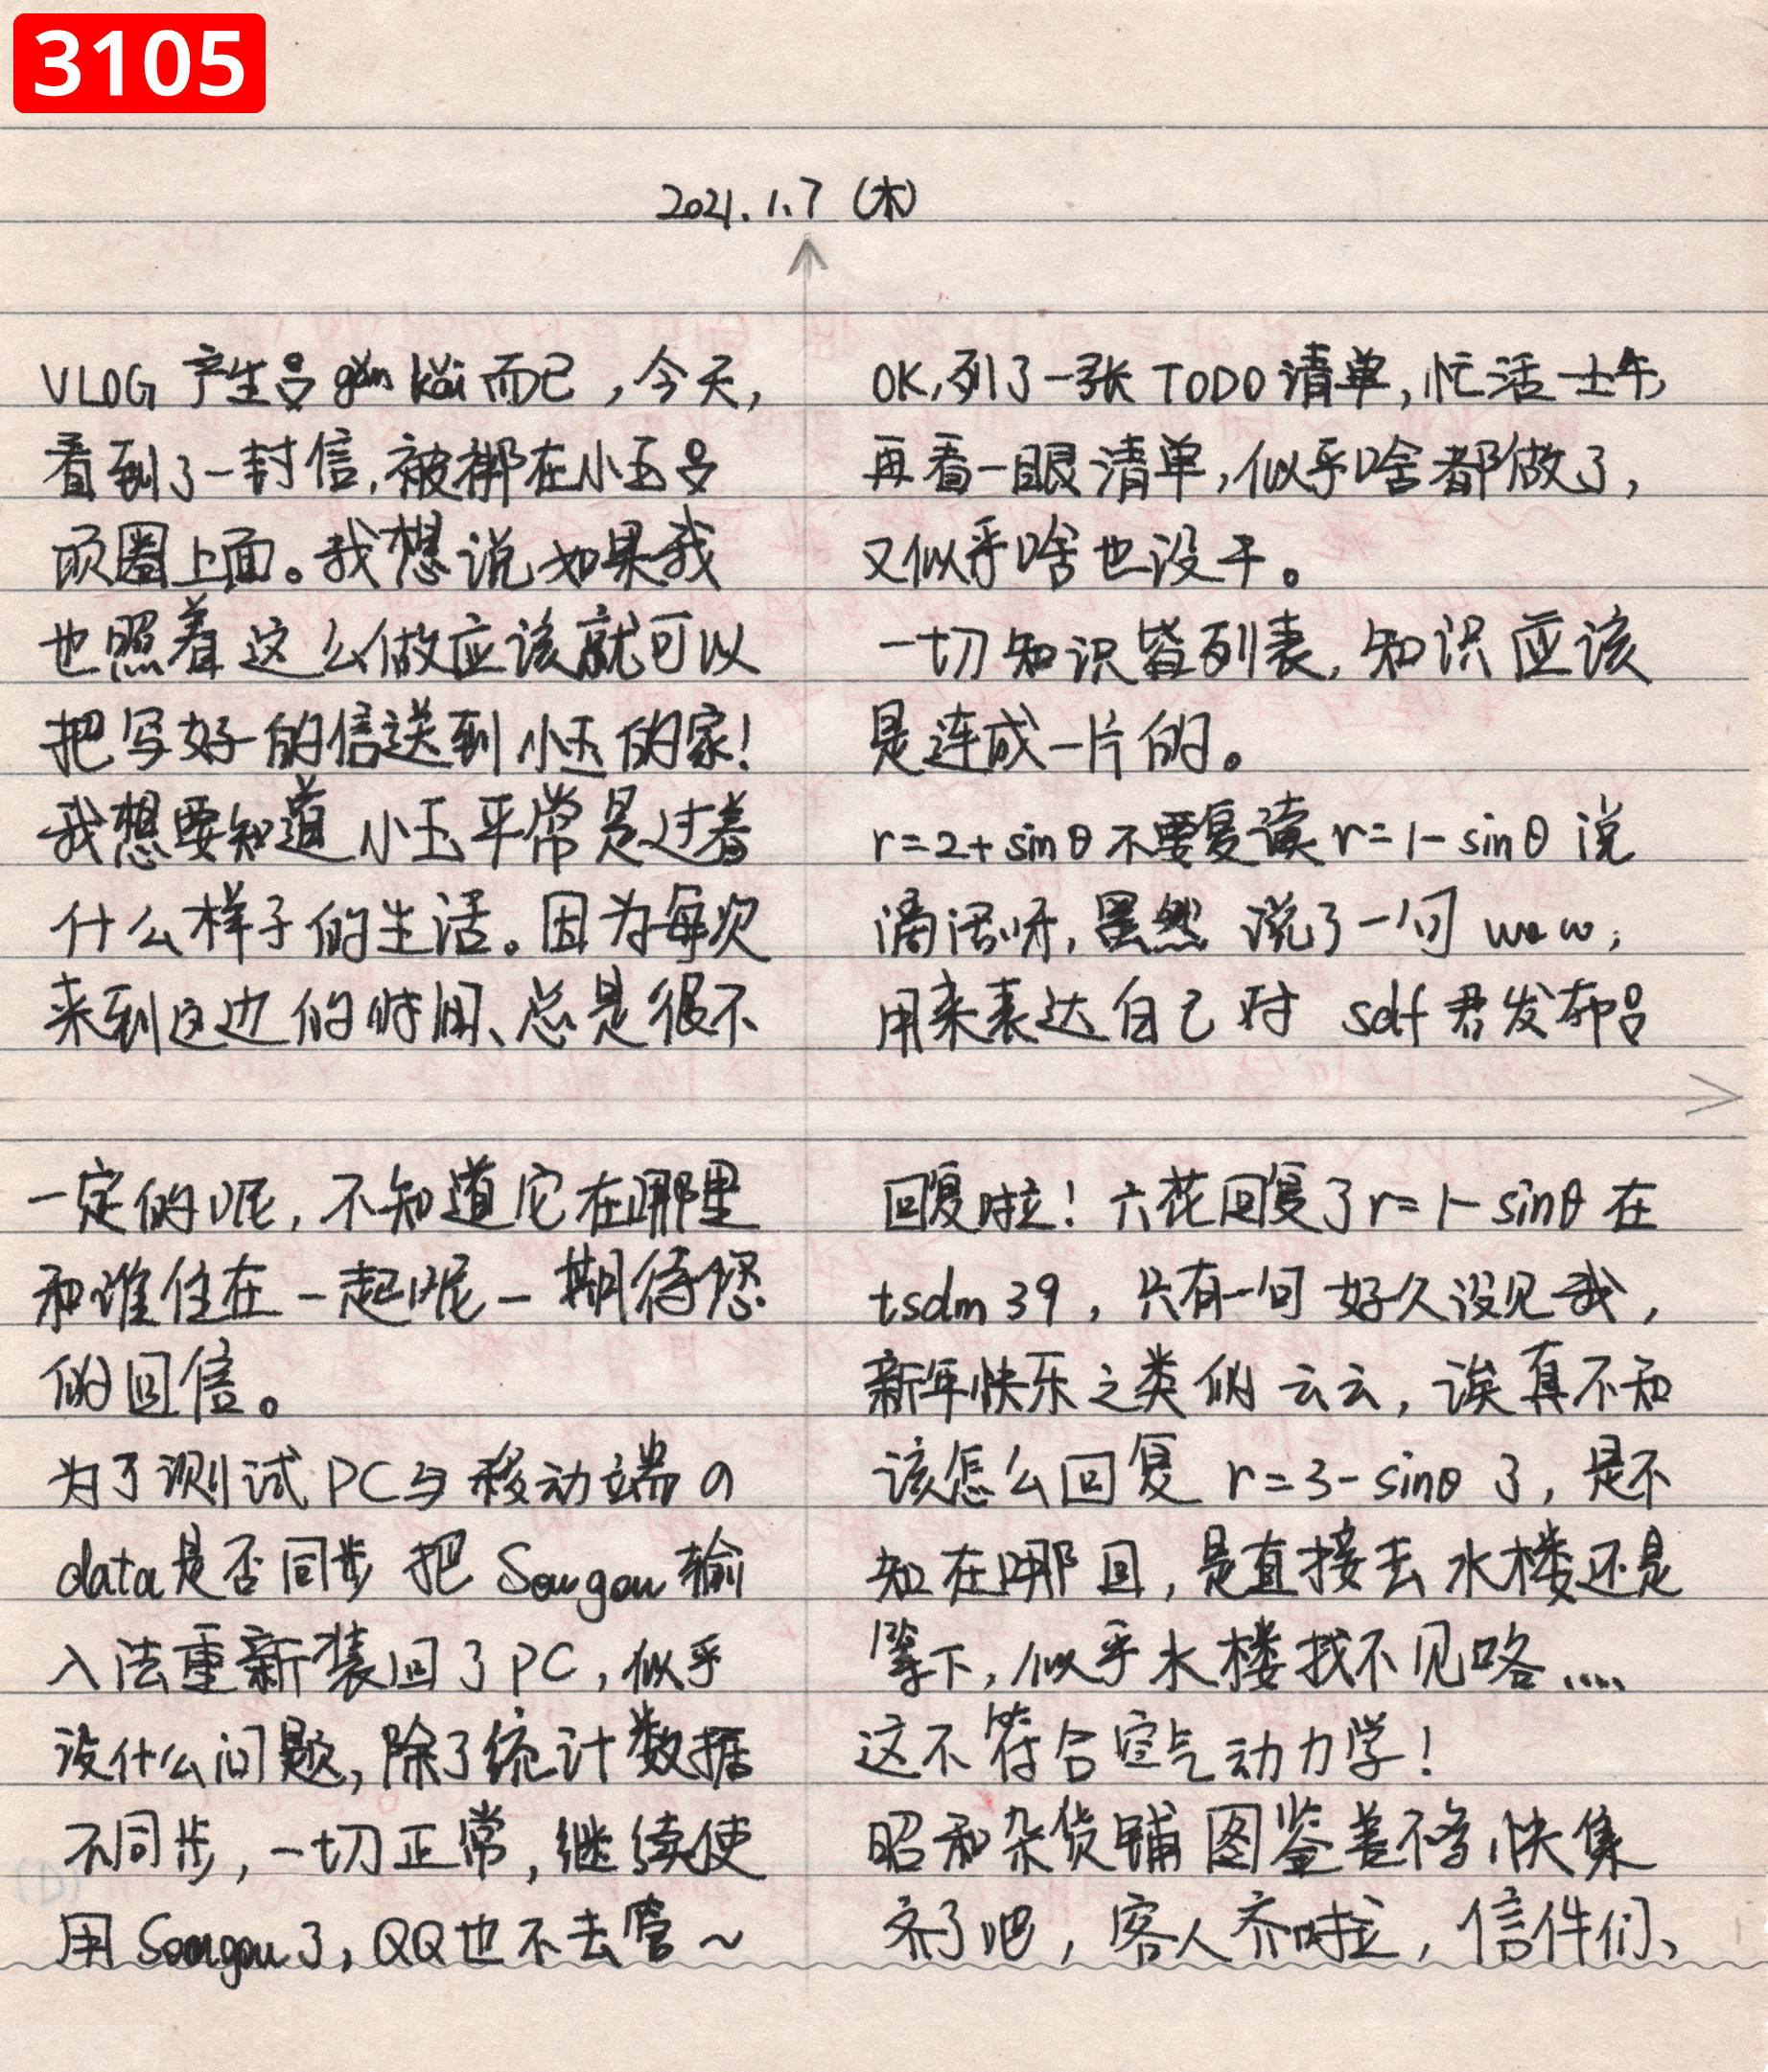 3105
2021.1.7 (木)
VLOG 产生 gǎn kǎi 而已，今天，
看到了一封信，被绑在小玉
项圈上面。我想说如果我
也照着这么做应该就可以
把写好的信送到小玉的家！
我想要知道小玉平常是过着
什么样子的生活。因为每次
来到这边的时间、总是很不
一定的呢，不知道它在哪里
和谁住在一起呢－期待您
的回信。
为了测试PC与移动端の
data是否同步 把 Sougou 输
入法重新装回了PC，似乎
没什么问题，除了统计数据
不同步，一切正常，继续使
用 Sougou了，QQ也不去管～
OK，列了一张 TODO 清单，忙活一上午
再看一眼清单，似乎啥都做了，
又似乎啥也没干。
一切知识皆列表，知识应该
是连成一片的。
r=2+sinθ 不要复读 r=1-sinθ 说
呀，虽然 说了一句 wow，
用来表达自己对 sdf 君发布
回复啦！六花回复了r=1-sinθ 在
tsdm39，只有一句 好久没见我，
新年快乐之类的云云，诶真不知
该怎么回复 r=3-sinθ 了，是不
知在哪回，是直接去水楼还是
等下，似乎水楼找不见咯....
这不符合空气动力学！
昭和杂货铺图鉴差不多快集
齐了吧，客人齐啦，信件们、